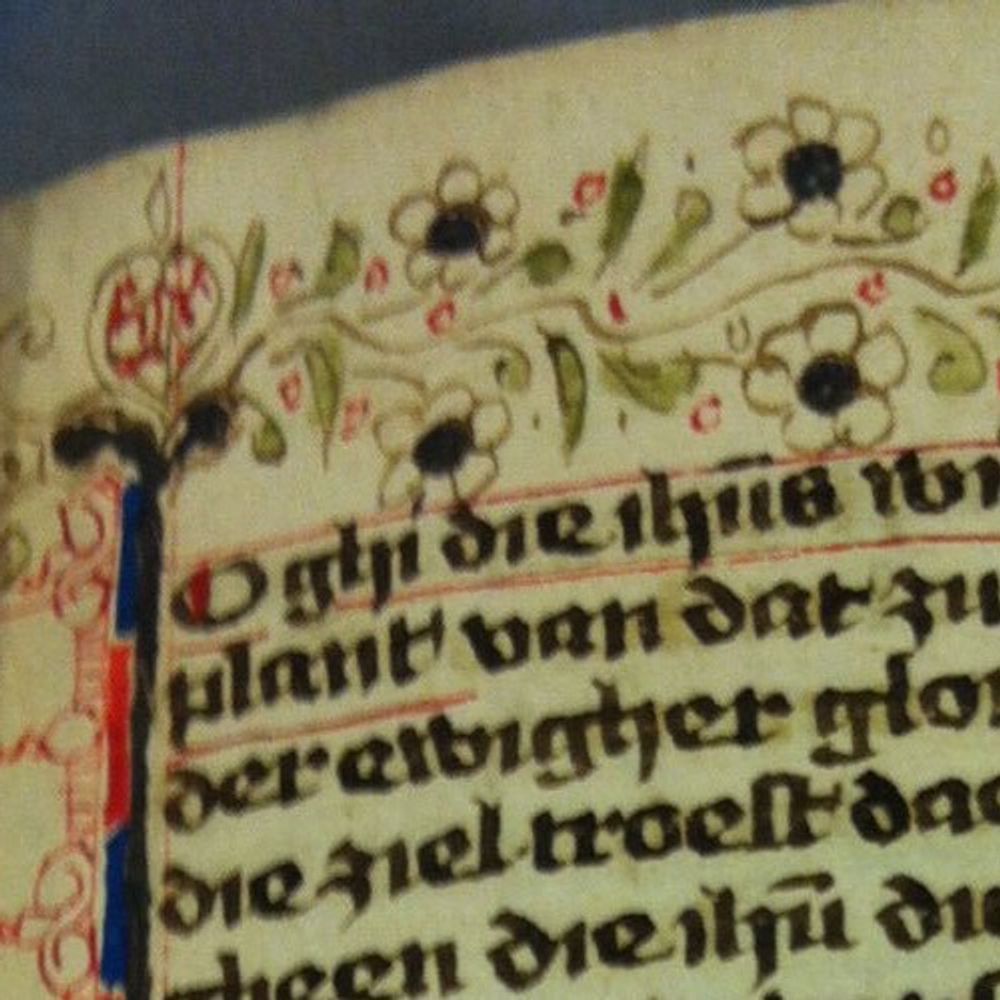 O ghi die ihūs
plant' van dat zu
der ewigher glor
die ziel troest dac
theen die ihū die